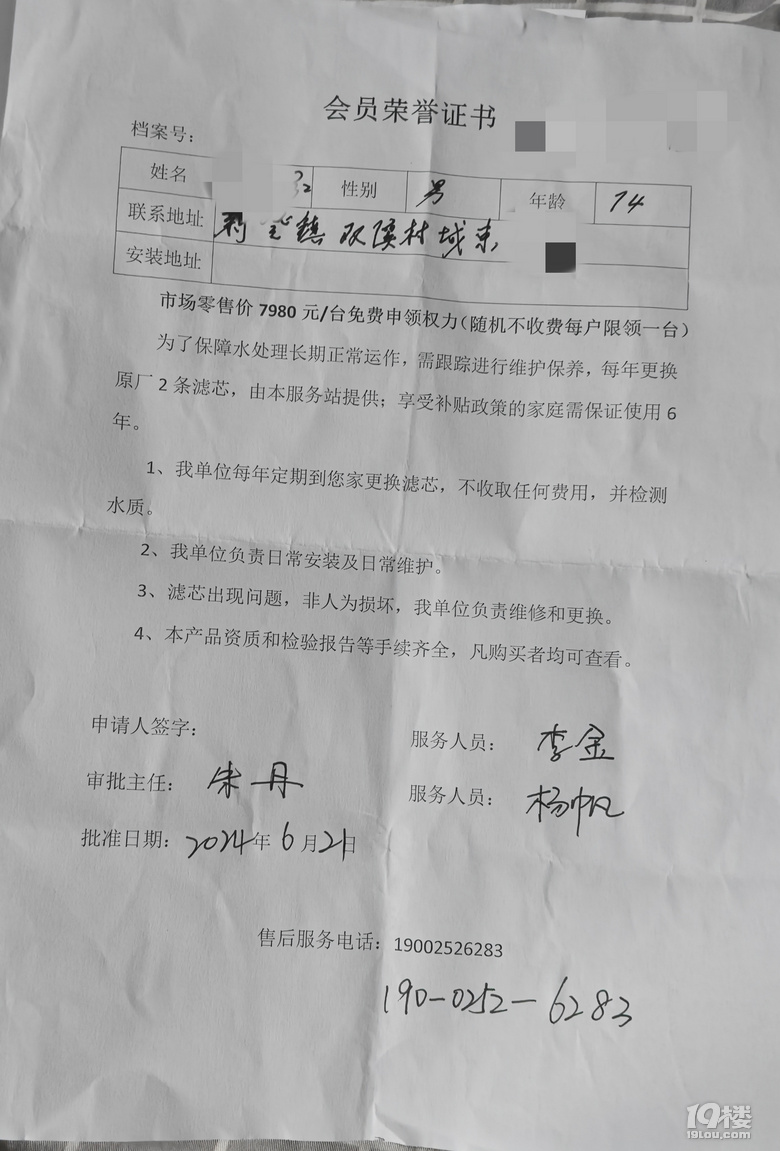 会员荣誉证书
档案号：
姓名 性别 男 年龄 74
联系地址 镇双溪村城东
安装地址
市场零售价 7980 元/台免费申领权力（随机不收费每户限领一台）
为了保障水处理长期正常运作，需跟踪进行维护保养，每年更换
原厂 2 条滤芯，由本服务站提供；享受补贴政策的家庭需保证使用 6
年。
1、我单位每年定期到您家更换滤芯，不收取任何费用，并检测
水质。
2、我单位负责日常安装及日常维护。
3、滤芯出现问题，非人为损坏，我单位负责维修和更换。
4、本产品资质和检验报告等手续齐全，凡购买者均可查看。
申请人签字： 服务人员： 李金
审批主任： 朱丹 服务人员： 杨帆
批准日期： 2024年 6 月 21日
售后服务电话：19002526283
190-0252-6283
19楼
19lou.com